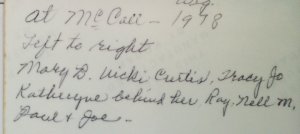 Aug.
at McCall - 1978
Left to right
Mary D. Vicki Curtis, Tracy Jo
Katheryne behind her Ray. Nell M.
Paul & Joe -